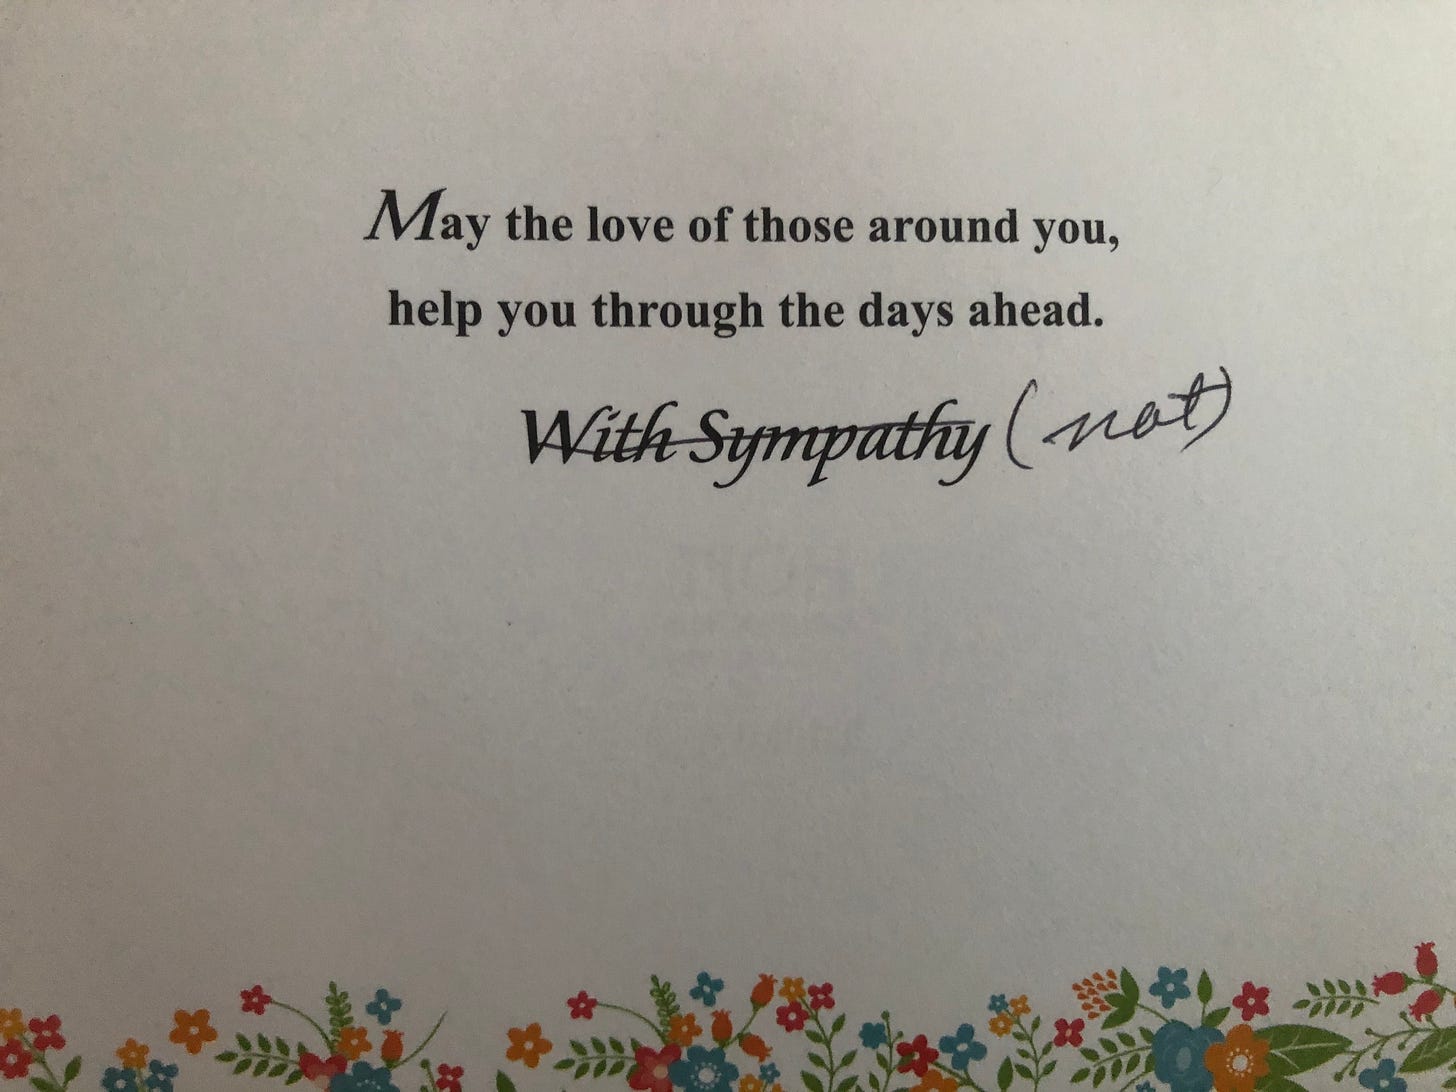 May the love of those around you,
help you through the days ahead.
With Sympathy (not)